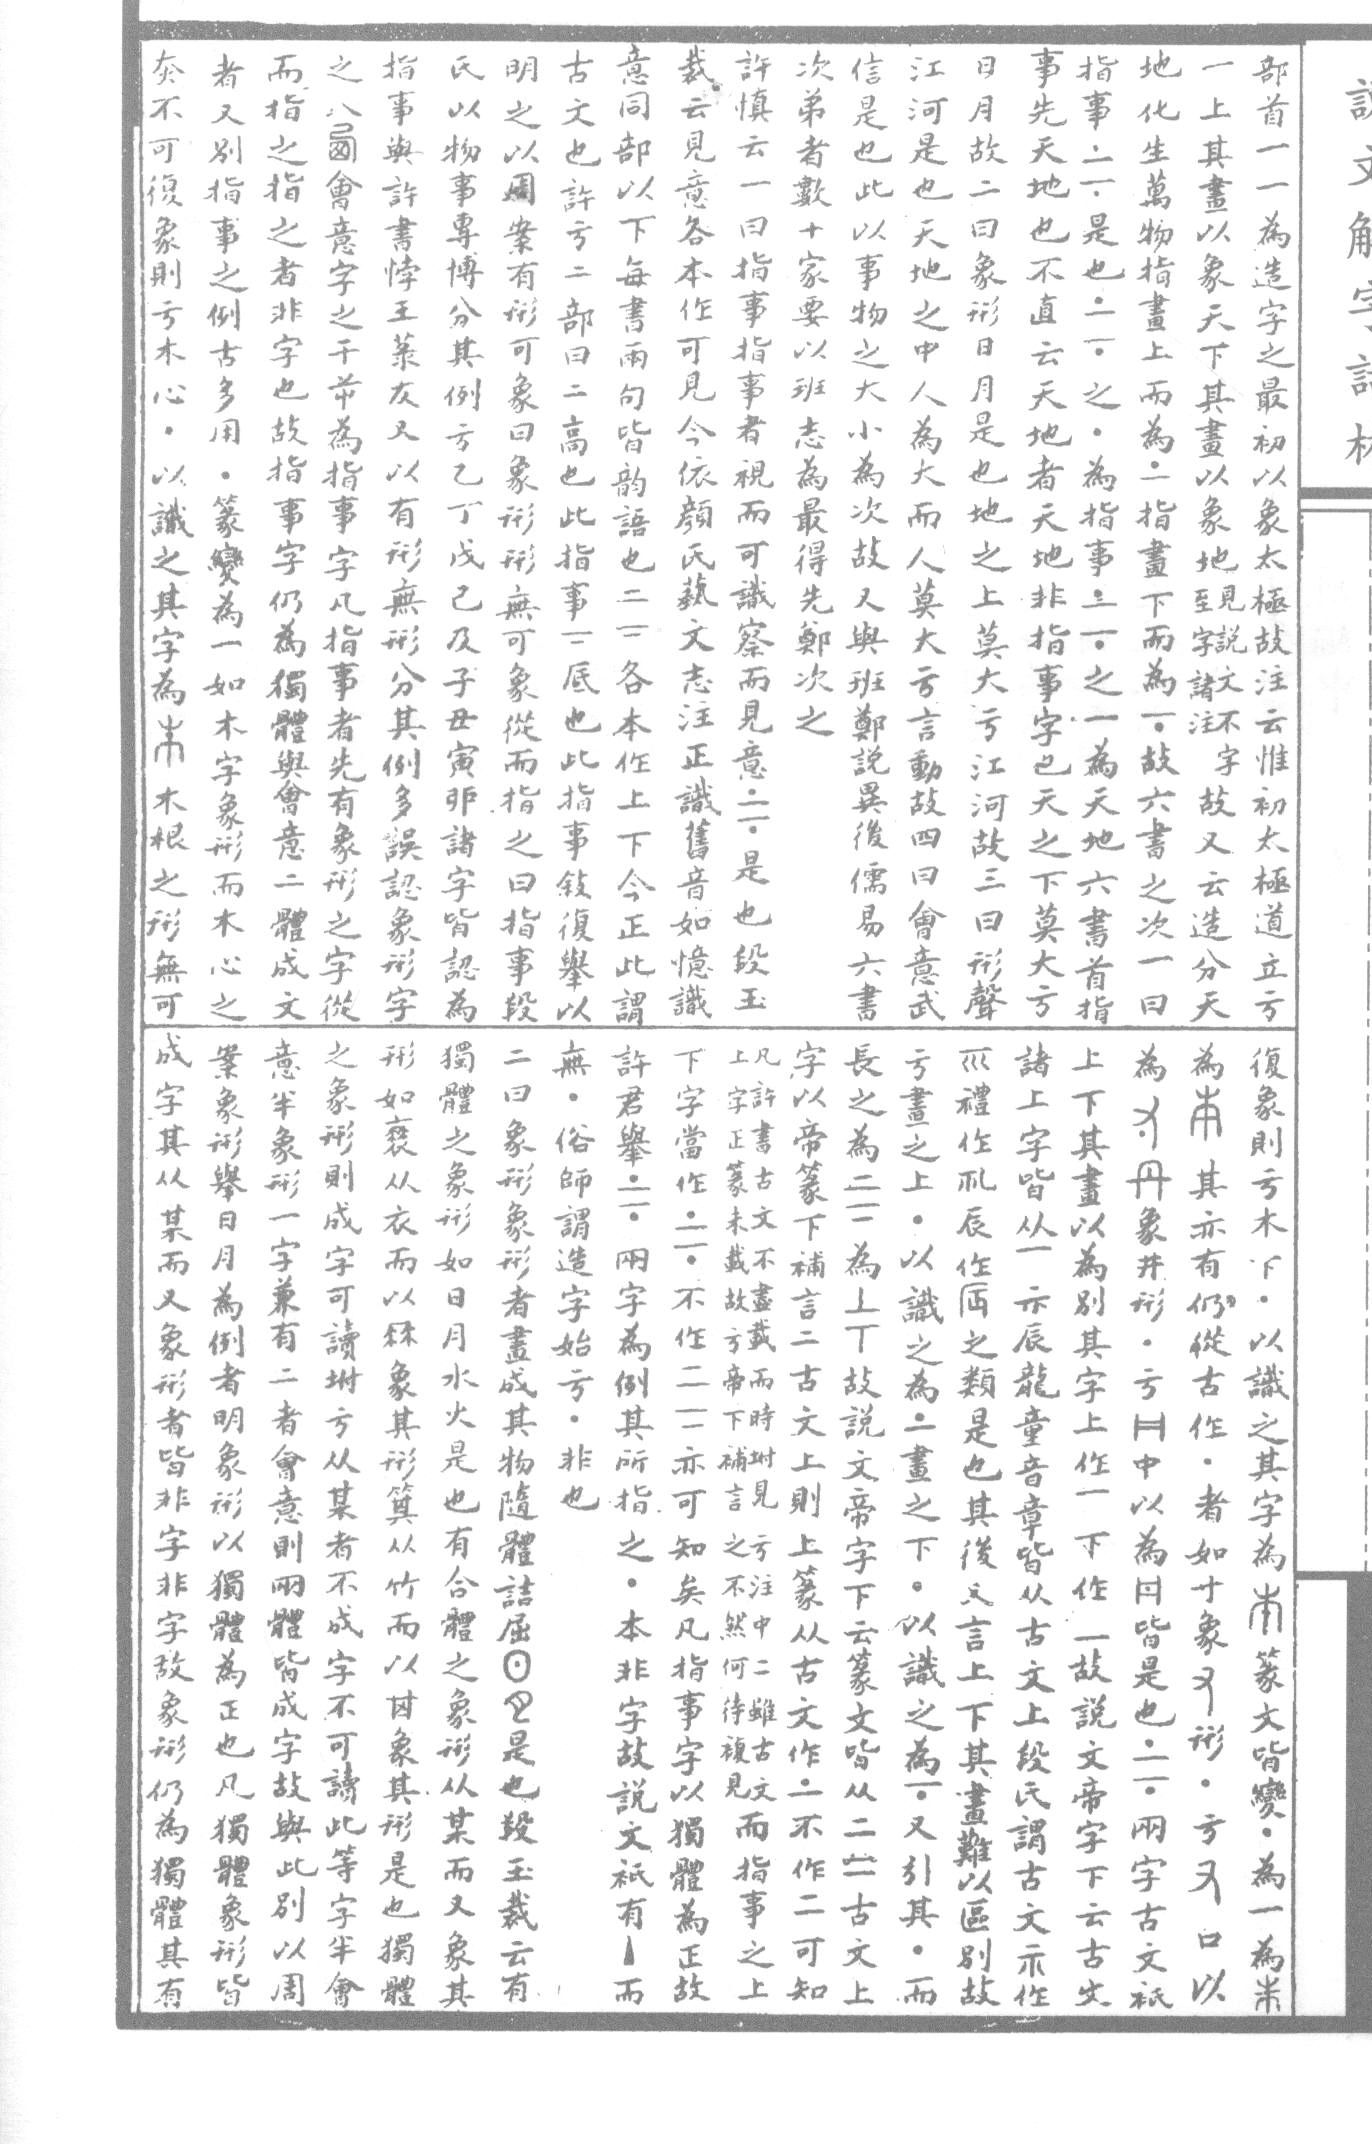 說文解字詁林
部首一一為造字之最初以象太極故注云惟初太極道立亏
一上其畫以象天下其畫以象地見說文不字至字諸注故又云造分天
地化生萬物指畫上而為·二指畫下而為一·故六書之次一曰
指事·二一·是也·二一·之·為指事·二一·之一為天地六書首指
事先天地也不直云天地者天地非指事字也天之下莫大亏
日月故二曰象形日月是也地之上莫大亏江河故三曰形聲
江河是也天地之中人為大而人莫大亏言動故四曰會意武
信是也此以事物之大小為次故又與班鄭說異後儒易六書
次弟者數十家要以班志為最得先鄭次之
許慎云一曰指事指事者視而可識察而見意·二一·是也段玉
裁云見意各本作可見今依顏氏藝文志注正識舊音如憶識
意同部以下每書兩句皆韵語也二二各本作上下今正此謂
古文也許亏二部曰二高也此指事二底也此指事敍復舉以
明之以周案有形可象曰象形形無可象從而指之曰指事段
氏以物事專博分其例亏乙丁戊己及子丑寅卯諸字皆認為
指事與許書悖王菉友又以有形無形分其例多誤認象形字
之八會意字之干芇為指事字凡指事者先有象形之字從
而指之指之者非字也故指事字仍為獨體與會意二體成文
者又別指事之例古多用·篆變為一如木字象形而木心之
𡗞不可復象則亏木心·以識之其字為木根之形無可
復象則亏木下·以識之其字為篆文皆變·為一為朱
為其亦有仍從古作·者如寸象又形·亏又口以
為丹象井形·亏中以為皆是也·二一·兩字古文衹
上下其畫以為別其字上作一下作一故說文帝字下云古文
諸上字皆从一示辰龍童音章皆从古文上段氏謂古文示作
礼作辰作之類是也其後文言上下其畫難以區別故
亏畫之上·以識之為·二畫之下·以識之為一·又引其·而
長之為二二為丄丅故說文帝字下云篆文皆从二二古文上
字以帝篆下補言二古文上則上篆从古文作·二不作二可知
凡許書古文不盡載而時坿見上字正篆未載故亏帝下補言亏注中二雖古文之不然何待複見而指事之上
下字當作·二一·不作二二亦可知矣凡指事字以獨體為正故
許君舉·二一·兩字為例其所指之·本非字故說文衹有丶而
無·俗師謂造字始亏·非也
二曰象形象形者畫成其物隨體詰屈是也段玉裁云有
獨體之象形如日月水火是也有合體之象形从某而又象其
形如裘从衣而以求象其形箕从竹而以𠀠象其形是也獨體
之象形則成字可讀坿亏从某者不成字不可讀此等字半會
意半象形一字兼有二者會意則兩體皆成字故與此別以周
案象形舉日月為例者明象形以獨體為正也凡獨體象形皆
成字其从某而又象形者皆非字非字故象形仍為獨體其有